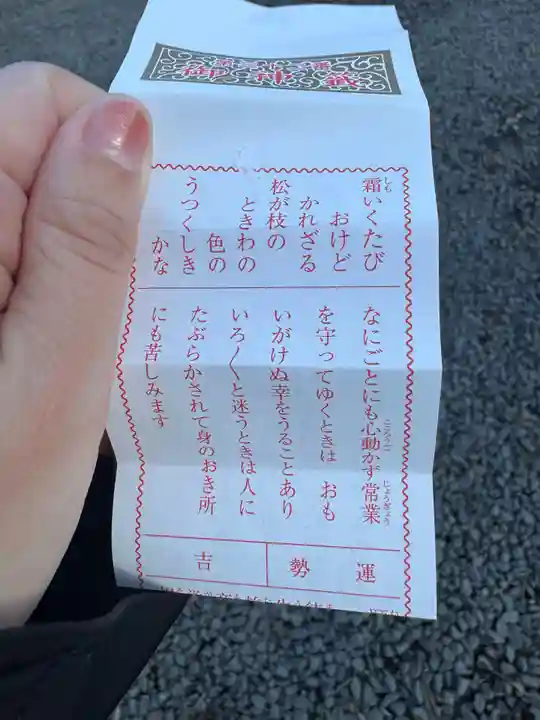 御神籤
霜いくたび
おけど
かれざる
松が枝の
ときわの
色の
うつくしき
かな
しも
なにごとにも心動かず常業
を守ってゆくときは おも
いがけぬ幸をうることあり
いろ〳〵と迷うときは人に
たぶらかされて身のおき所
にも苦しみます
こころうご
じょうぎょう
運勢
吉